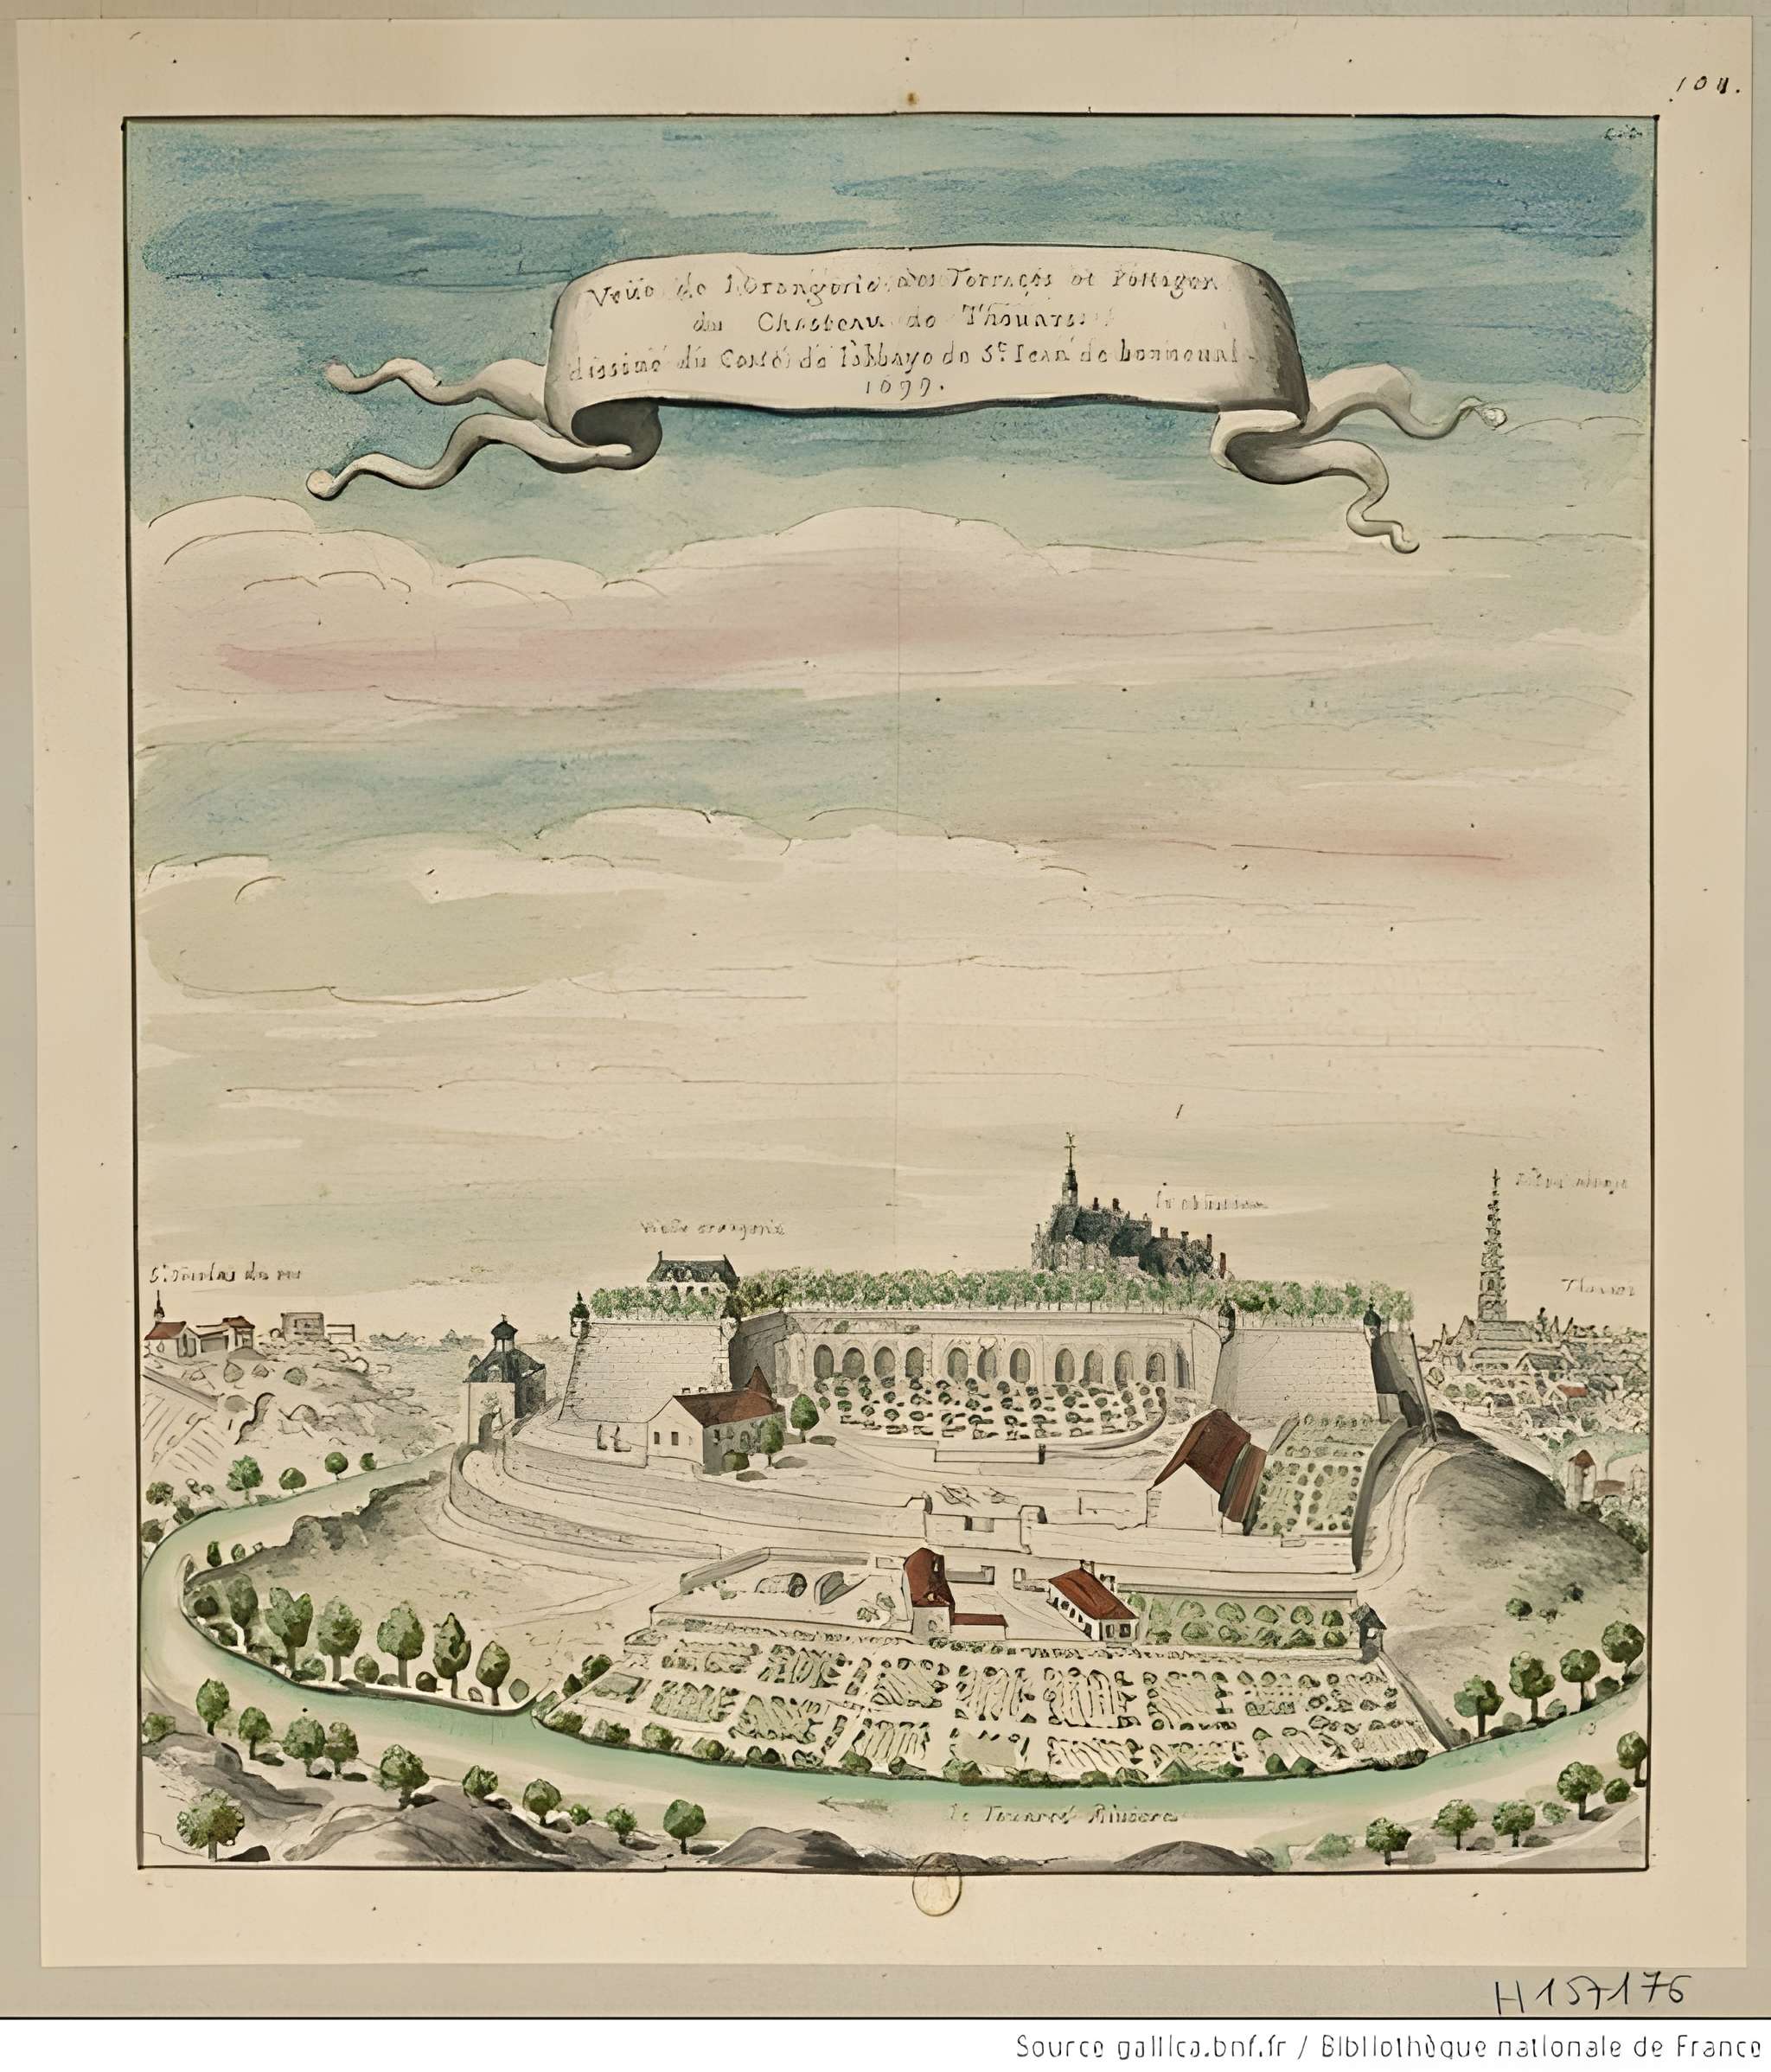 104.
Veüe de l'Orangerie des Terraces et Pottager
du Chasteau de Thouars
dissiné du Costé de l'abbaye de St. Jean de bonneual
1699.
Vieille orangerie
le chasteau
Thouars
Le Thouaret Riuiere
H157176
Source gallica.bnf.fr / Bibliothèque nationale de France